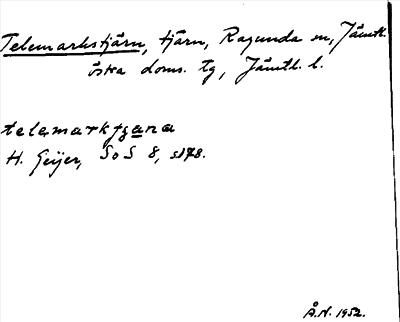 Telemarkstjärn, tjärn, Ragunda sn, Jämtl.
östra doms. tg, Jämtl. l.
telemarktjana
H. Geijer, SoS 8, s178.
Å.N. 1952.